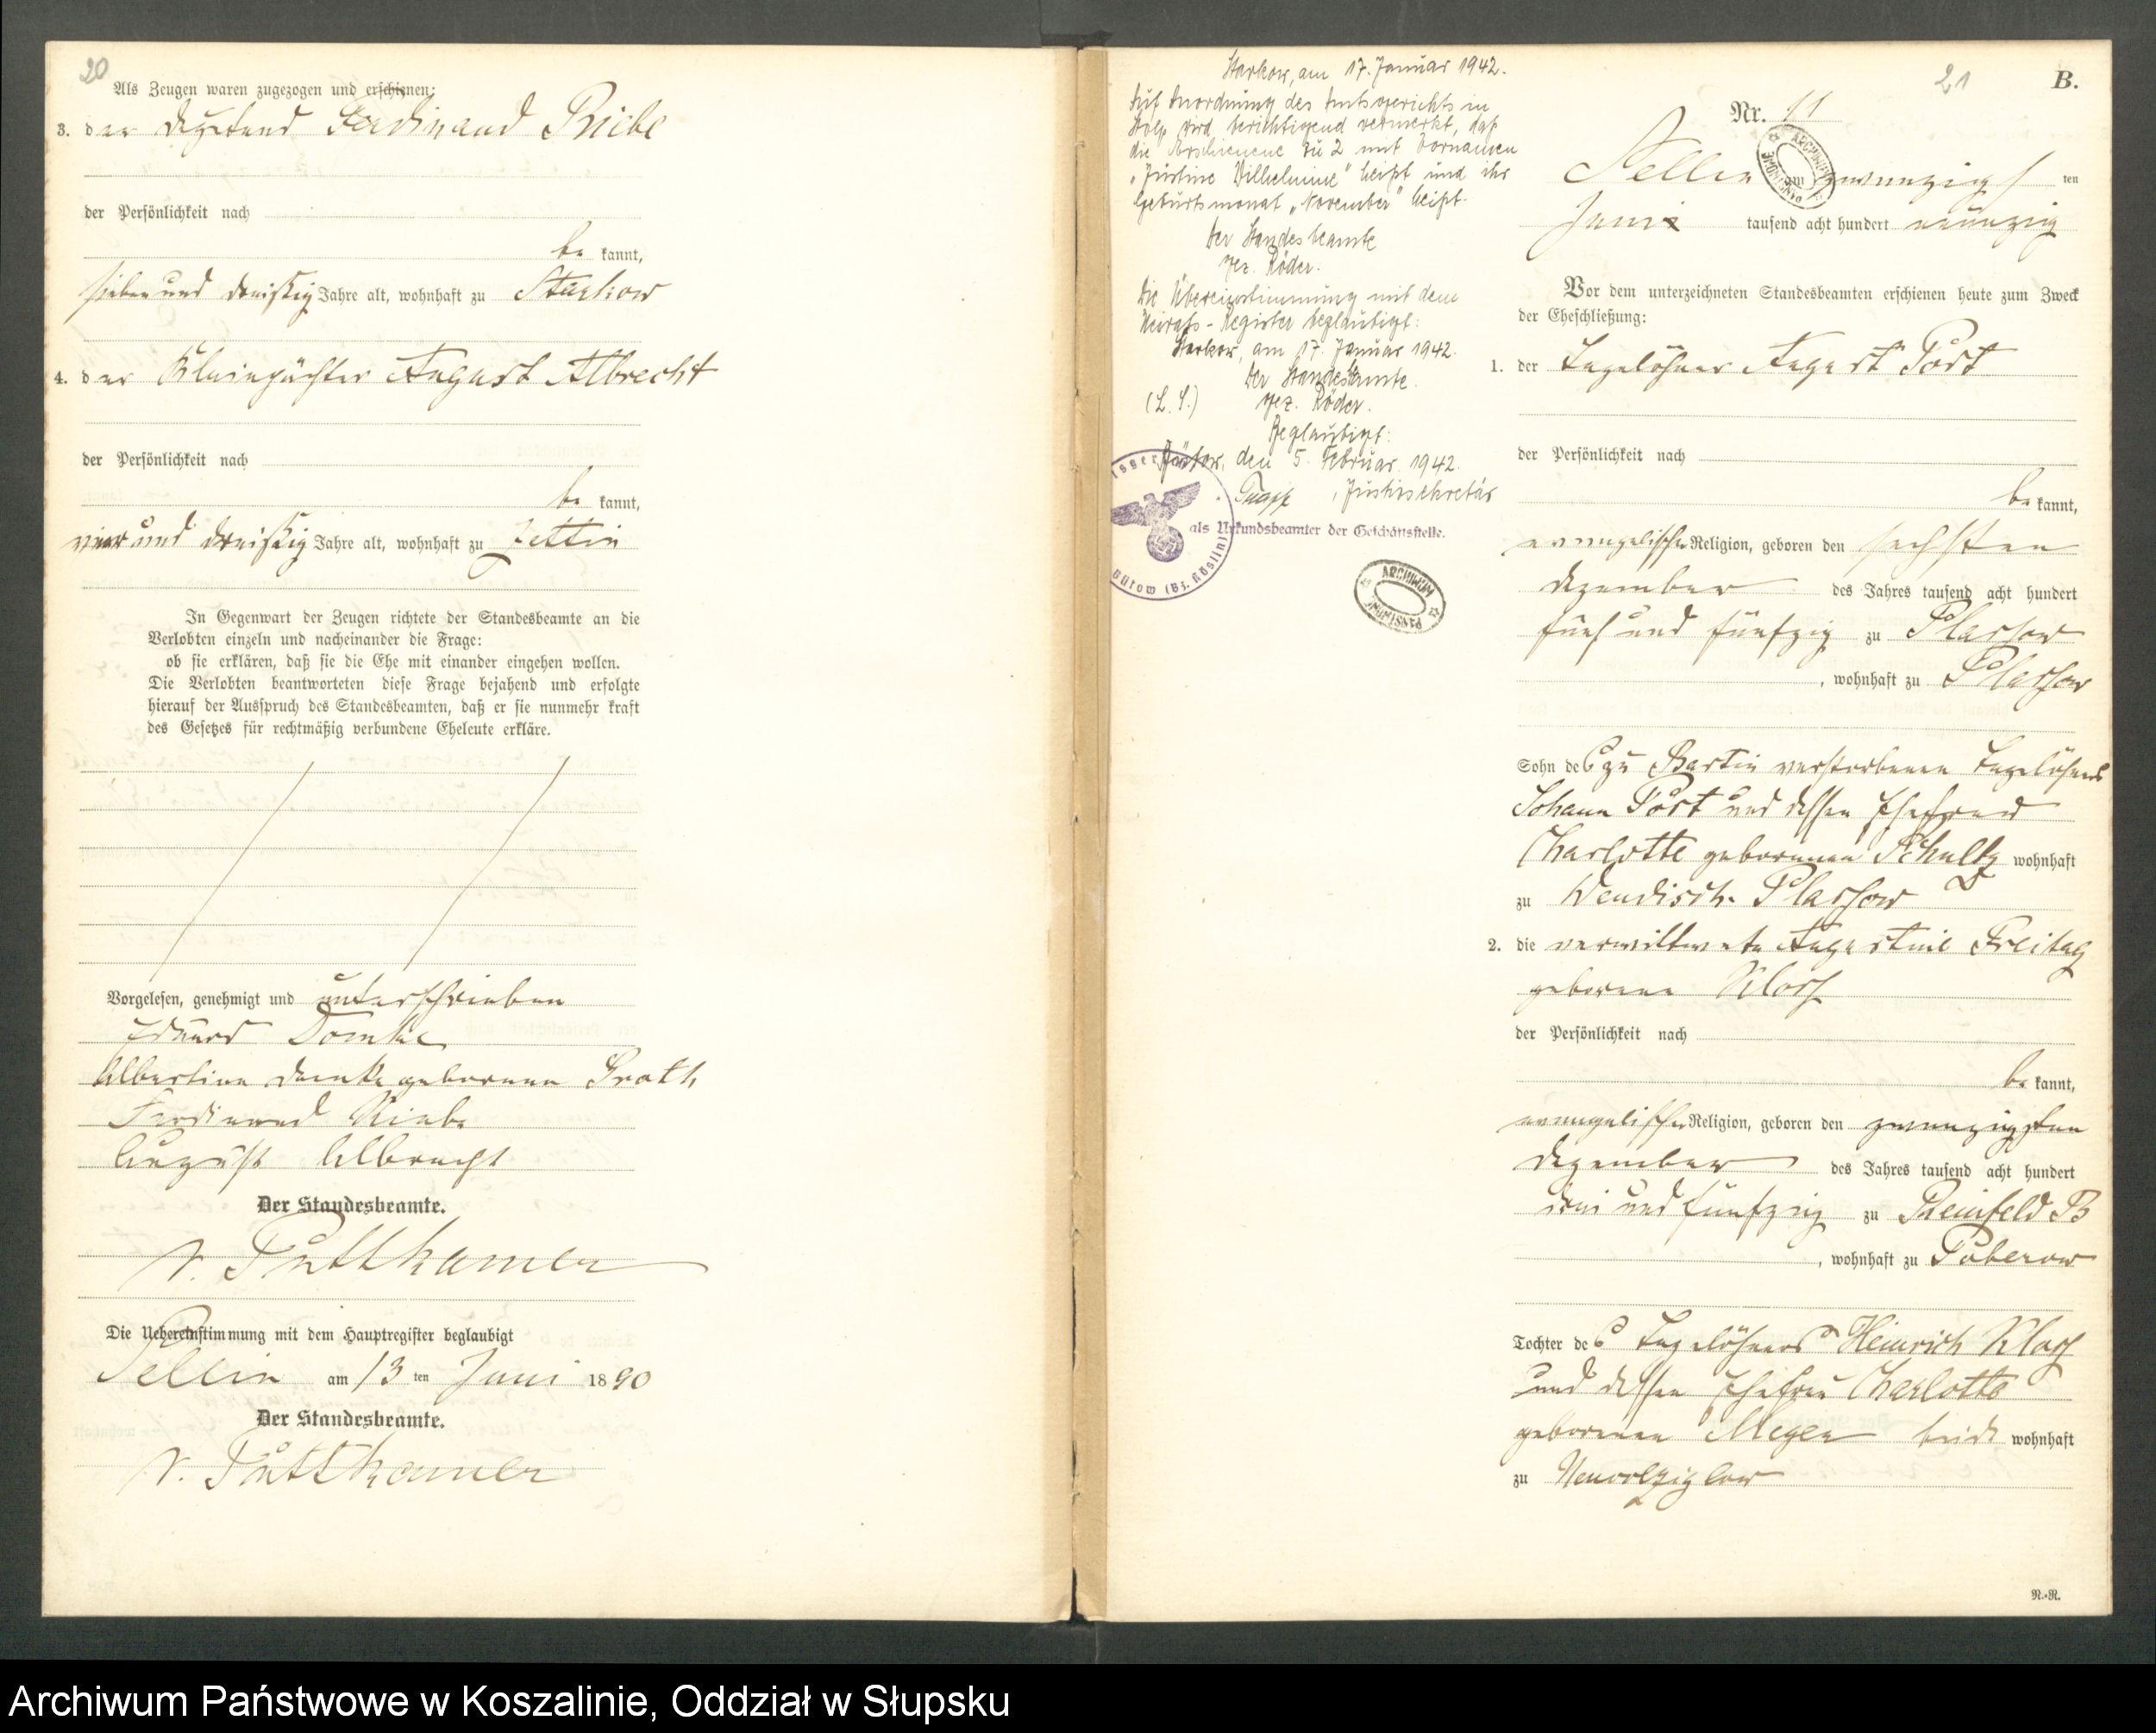 20
Als Zeugen waren zugezogen und erschienen:
3. der Deputant Ferdinand Priebe
der Persönlichkeit nach
be kannt,
sieben und dreißig Jahre alt, wohnhaft zu Starkow
4. der Kleinpächter August Albrecht
der Persönlichkeit nach
be kannt,
vier und dreißig Jahre alt, wohnhaft zu Zettin
In Gegenwart der Zeugen richtete der Standesbeamte an die
Verlobten einzeln und nacheinander die Frage:
ob sie erklären, daß sie die Ehe mit einander eingehen wollen.
Die Verlobten beantworteten diese Frage bejahend und erfolgte
hierauf der Ausspruch des Standesbeamten, daß er sie nunmehr kraft
des Gesetzes für rechtmäßig verbundene Eheleute erkläre.
Vorgelesen, genehmigt und unterschrieben
Eduard Domke
Albertine Domke geborene Groth
Ferdinand Priebe
August Albrecht
Der Standesbeamte.
v. Puttkamer
Die Uebereinstimmung mit dem Hauptregister beglaubigt
Sellin am 13 ten Juni 1890
Der Standesbeamte.
v. Puttkamer
Starkow, am 17. Januar 1942.
Auf Anordnung des Amtsgerichts in
Stolp wird berichtigend vermerkt, daß
die Erschienene zu 2 mit Vornamen
"Justine Wilhelmine" heißt und ihr
Geburtsmonat "November" heißt.
Der Standesbeamte
gez. Röder.
Die Übereinstimmung mit dem
Heirats-Register beglaubigt:
Starkow, am 17. Januar 1942.
Der Standesbeamte.
(L. S.) gez. Röder.
Beglaubigt:
Bütow, den 5. Februar 1942.
, Justizsekretär
als Urkundsbeamter der Geschäftsstelle.
Bütow (Bz. Köslin)
ARCHIWUM PAŃSTWOWE
21
B.
Nr. 11
ARCHIWUM PAŃSTWOWE
Sellin am zwanzigs ten
Juni tausend acht hundert neunzig
Vor dem unterzeichneten Standesbeamten erschienen heute zum Zweck
der Eheschließung:
1. der Tagelöhner August Post
der Persönlichkeit nach
be kannt,
evangelischer Religion, geboren den sechsten
Dezember des Jahres tausend acht hundert
fünf und fünfzig zu Plassow
, wohnhaft zu Plassow
Sohn des zu Bartin verstorbenen Tagelöhners
Johann Post und dessen Ehefrau
Charlotte geborenen Schultz wohnhaft
zu Wendisch-Plassow
2. die verwittwete Augustine Freitag
geborene Kloss
der Persönlichkeit nach
be kannt,
evangelischer Religion, geboren den zwanzigsten
Dezember des Jahres tausend acht hundert
drei und fünfzig zu Reinfeld B
, wohnhaft zu Poberow
Tochter des Tagelöhners Heinrich Kloss
und dessen Ehefrau Charlotte
geborenen Meyer beide wohnhaft
zu Neuvolziglow
R.-R.
Archiwum Państwowe w Koszalinie, Oddział w Słupsku